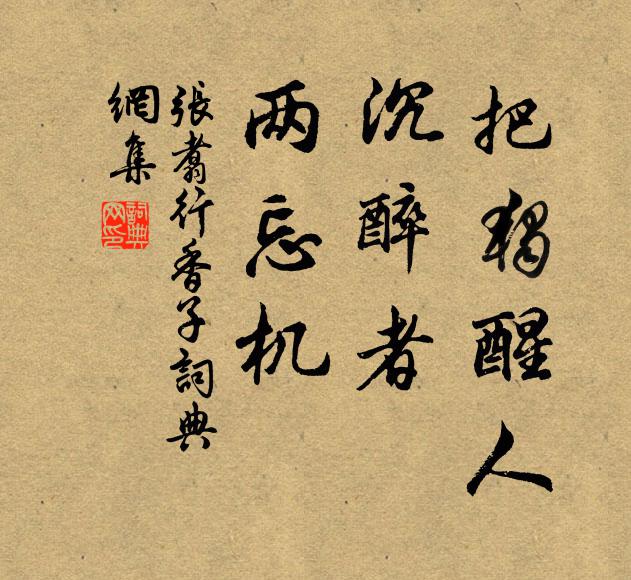 把独醒人
沉醉者
两忘机
張翥行香子詞典
網集
詞典
网印